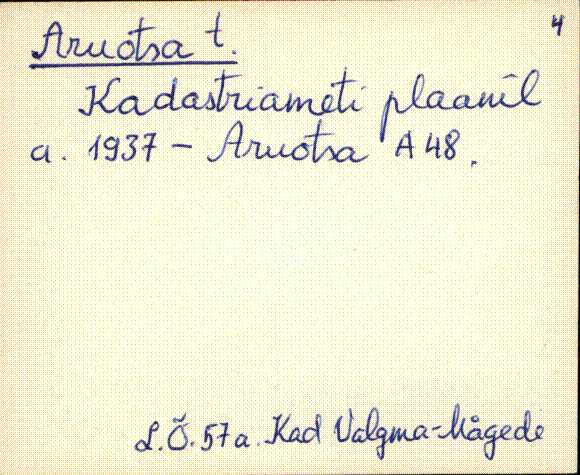 4
Aruotsa t.
Kadastriameti plaanil
a. 1937 - Aruotsa A 48.
L.Õ. 57 a. Kad Valgma-Mägede